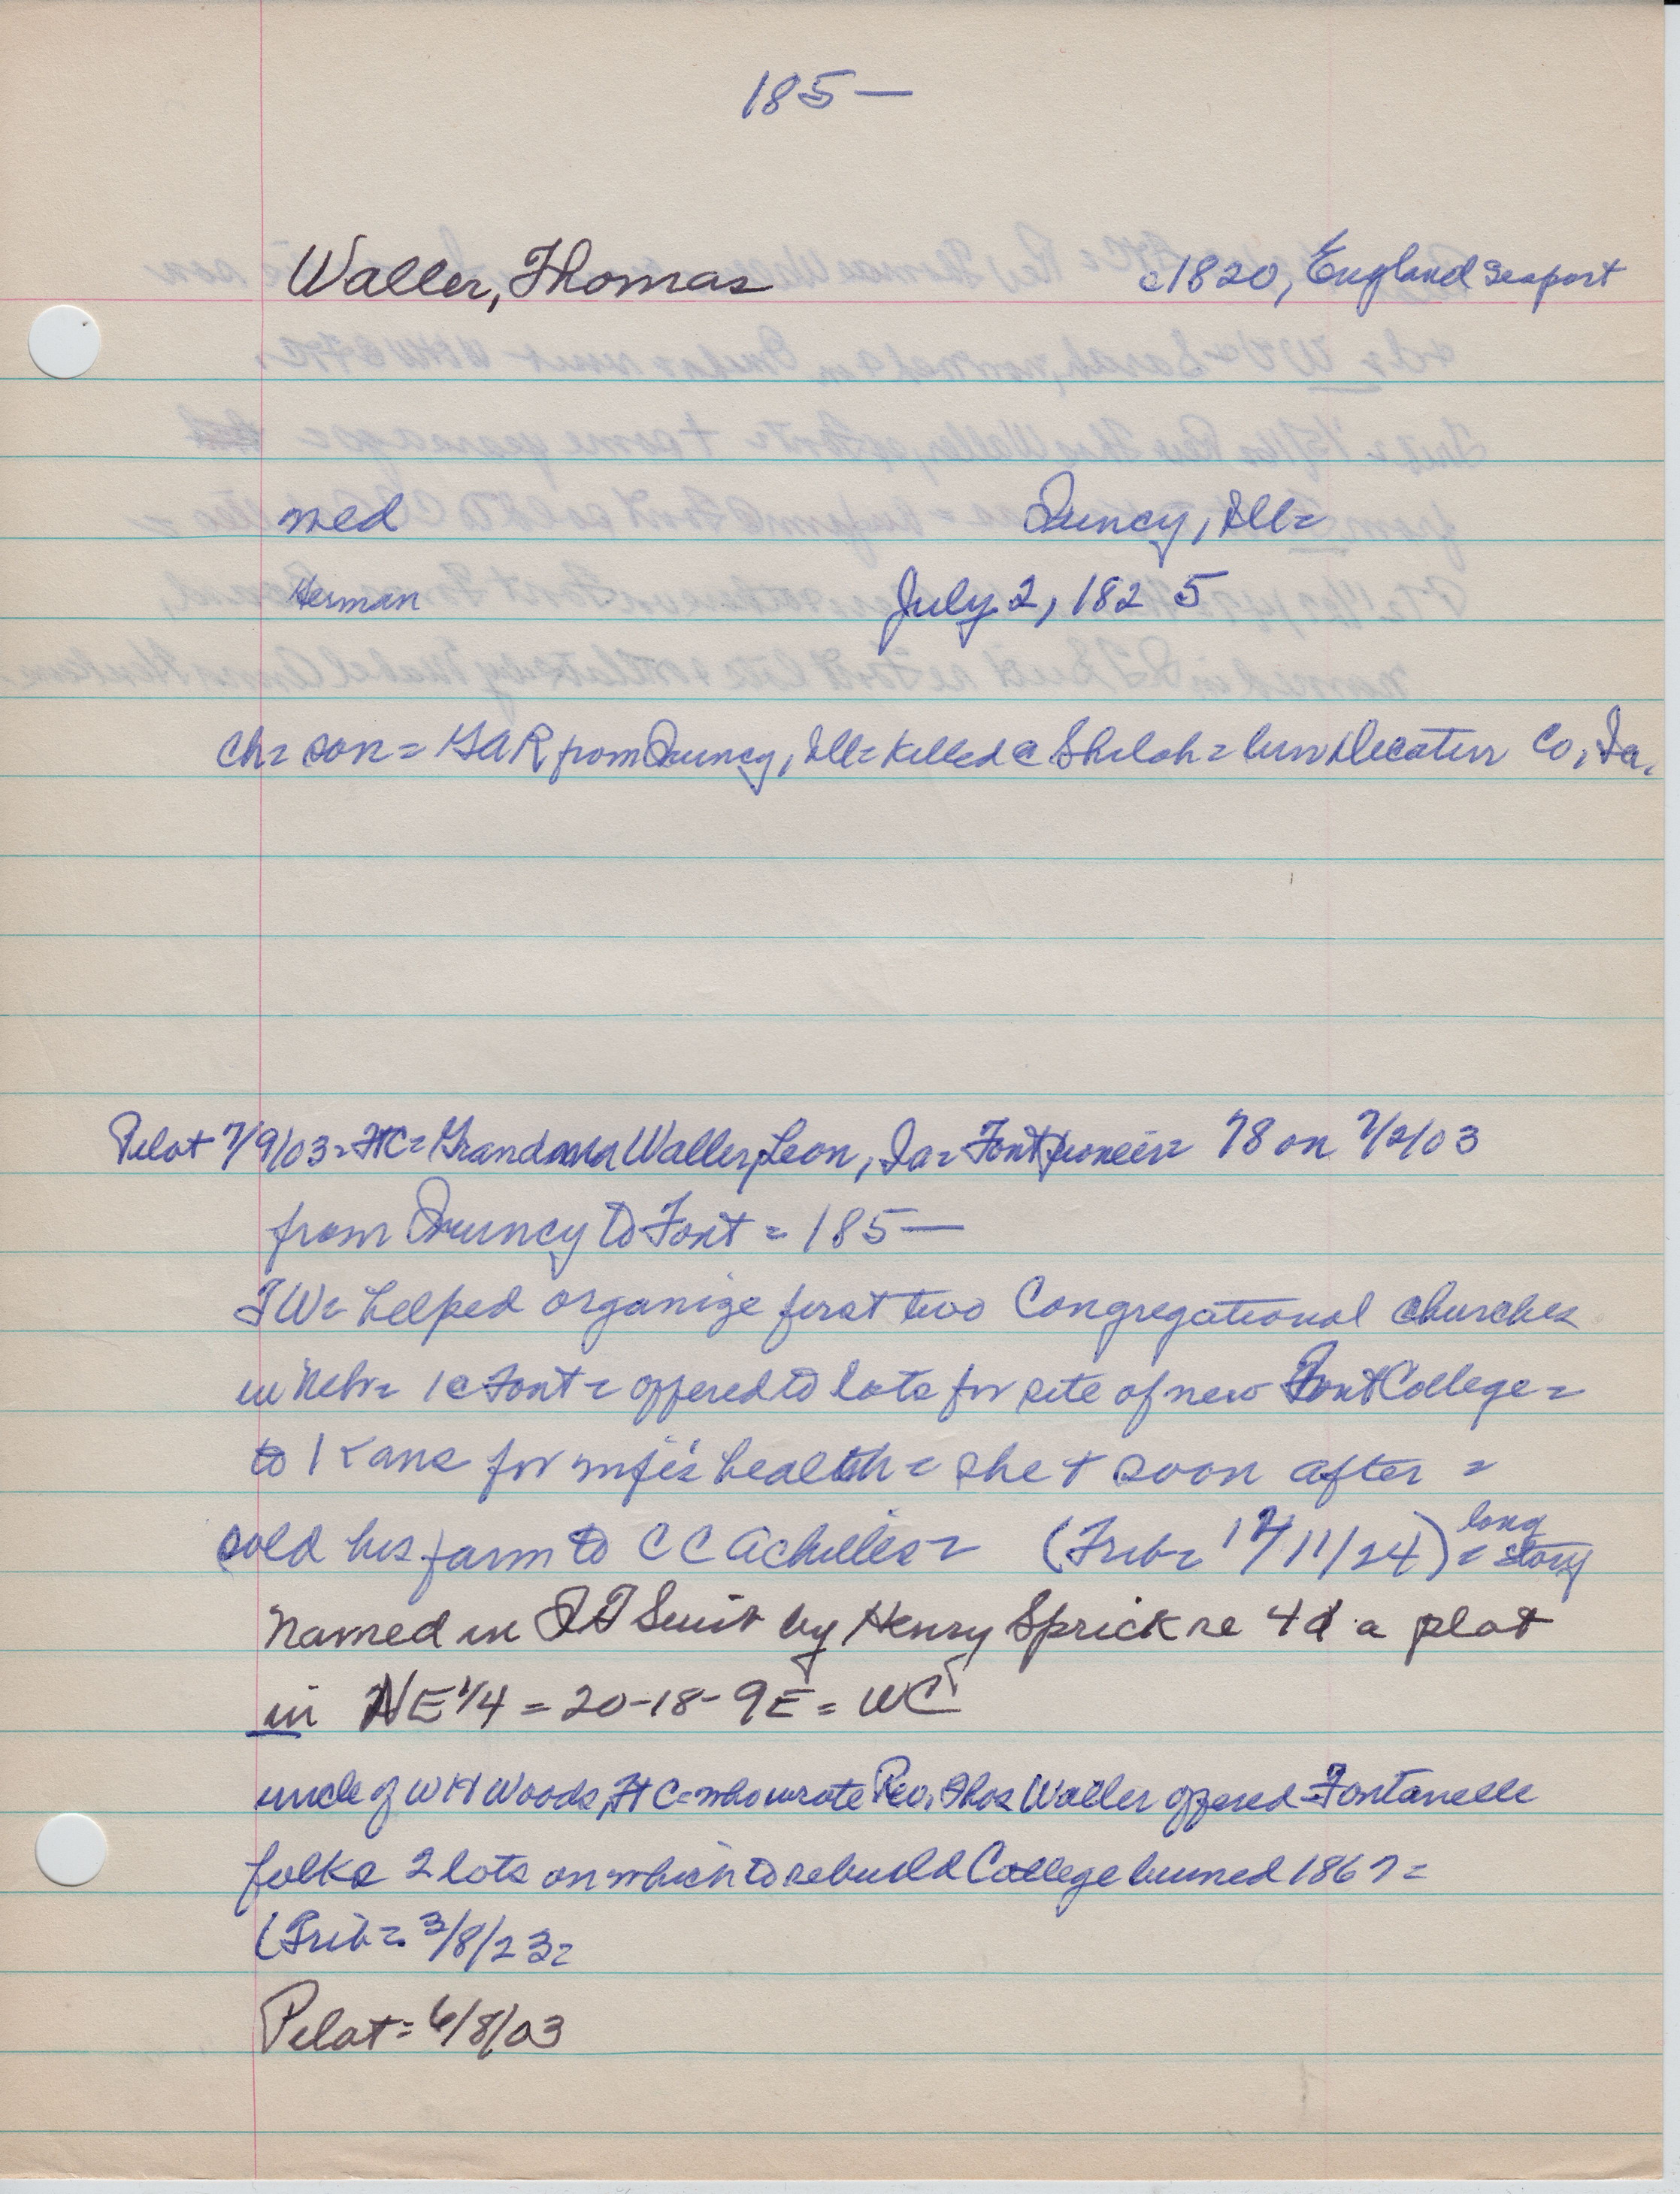 185—
Waller, Thomas c1820, England seaport
med Quincy, Ill=
Herman July 2, 1825
ch= son = GAR from Quincy, Ill= killed @ Shiloh = bur Decatur Co, Ia.
Pilot 7/9/03 = FtC = Grandma Waller, Leon, Ia = Font pioneer = 78 on 7/2/03
from Quincy to Font = 185—
TW = helped organize first two Congregational churches
in Neb = 1 @ Font = offered to lots for site of new Font College =
to Kans for wife's health = she + soon after =
sold his farm to C C Achilles = (Trib = 12/11/24) = long story
Named in Suit by Henry Sprick re 4d a plat
in NE 1/4 = 20-18-9E = WC
uncle of W H Woods, Ft C = who wrote Rev. Thos Waller offered Fontanelle
folks 2 lots on which to rebuild College burned 1867 =
(Trib = 3/8/23 =
Pilot = 6/8/03